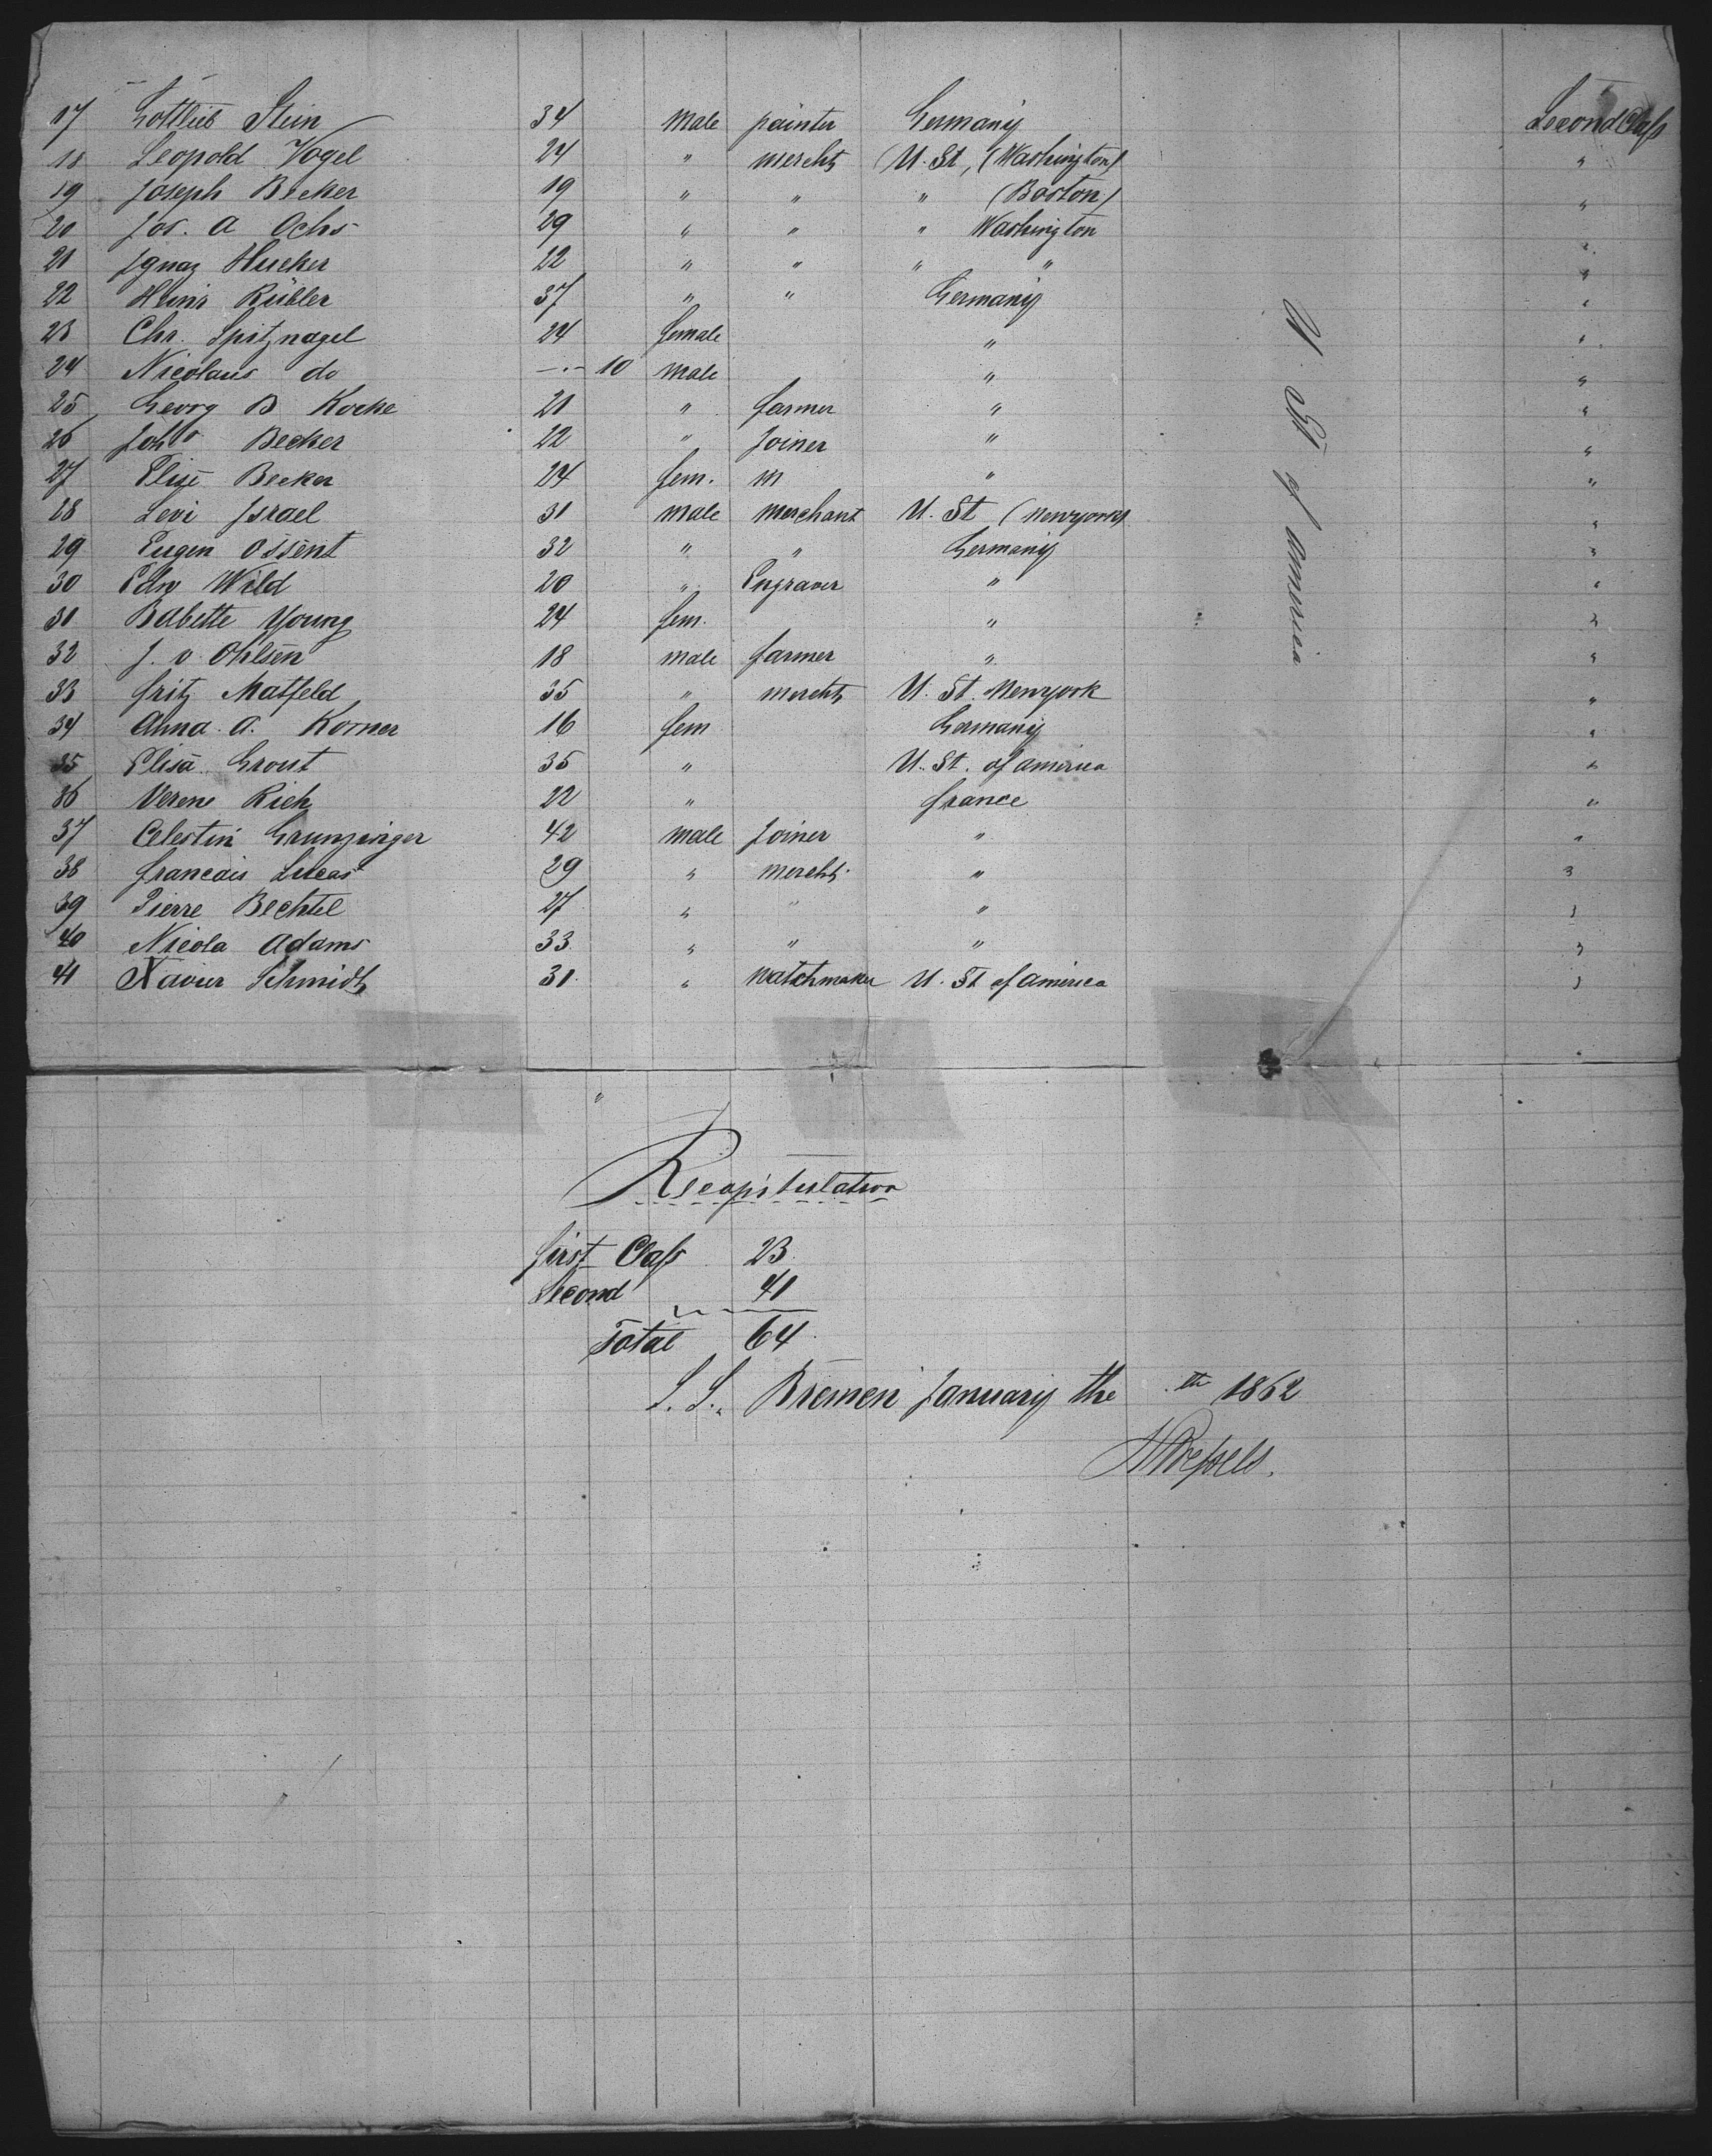 17 Gottlieb Stein 34 male painter Germany Second Class
18 Leopold Vogel 24 " mercht, (U. St, (Washington) "
19 Joseph Becker 19 " " " (Boston) "
20 Jos. A Ochs 29 " " " Washington "
21 Ignaz Hucker 22 " " " " "
22 Heinr Kübler 37 " " Germany "
23 Chr. Spitznagel 24 female " "
24 Nicolaus do -.- 10 male " "
25 Georg B Kocke 21 " farmer " "
26 Joh. Becker 22 " Joiner " "
27 Elise Becker 24 fem. " "
28 Levi Israel 31 male merchant U. St (Newyork) "
29 Eugen Ossent 32 " " Germany "
30 Edw Wild 20 " Engraver " "
31 Babette Young 24 fem. " "
32 J. v. Ohlsen 18 male farmer " "
33 Fritz Matfeld 35 " mercht, U. St. Newyork "
34 Anna. A. Korner 16 fem Germany "
35 Elisa Grout 35 " U. St. of America "
36 Verene Rich 22 " France "
37 Celestin Grunzinger 42 male Joiner " "
38 Francais Lucas 29 " mercht. " "
39 Pierre Bechtel 27 " " " "
40 Nicola Adams 33 " " " "
41 Xavier Schmidt 31. " watchmaker U. St of America "
U. St of America
Recapitulation
First Class 23
Second 41
Total 64
S. S. Bremen January the th 1862